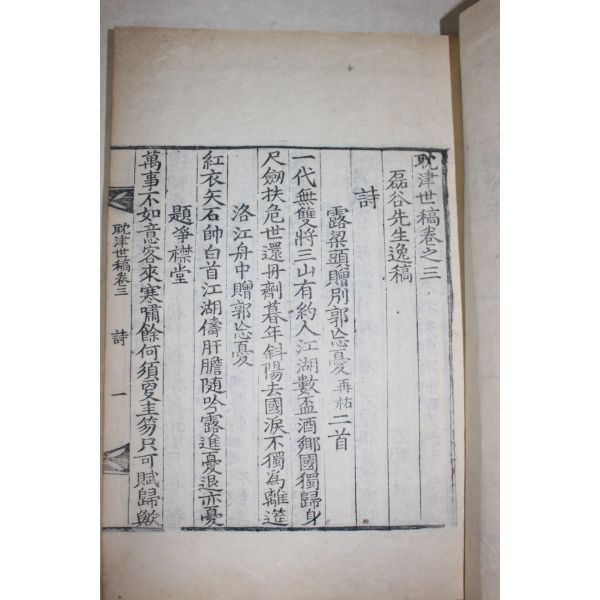 耽津世稿卷之三
磊谷先生逸稿
詩
露梁頭贈別郭忘憂再祐二首
一代無雙將三山有約人江湖數盃酒鄉國獨歸身
尺劒扶危世還丹劑暮年斜陽去國淚不獨爲離筵
洛江舟中贈郭忘憂
紅衣矢石帥白首江湖儔肝膽隨吟露進憂退亦憂
題爭襟堂
萬事不如意客來寒嘯餘何須戛圭笏只可賦歸歟
耽津世稿卷三
詩
一